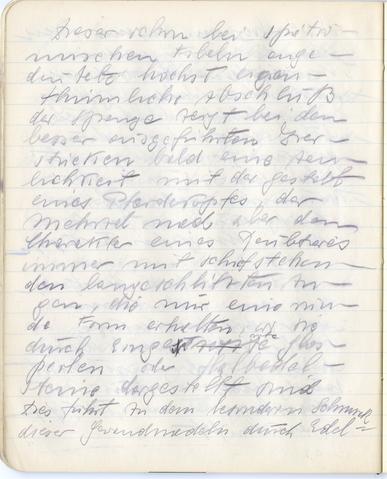 Dieser schon bei spätrö-
mischen Fibeln ange-
deutete höchst eigen-
thümliche Abschluß
der Spange zeigt bei den
besser ausgeführten Exem-
stücken bald eine
Ähnlichkeit mit der Gestalt
eines Pferdekopfes, der
Mehrzahl nach aber den
Charakter eines Raubtieres
immer mit schiefstehen-
den langgeschlitzten Au-
gen, die nur eine run-
de Form erhalten, wo sie
durch eingesetzte Glas-
perlen oder Halbedel-
steine dargestellt sind
Dies führt zu dem besondern Schmuck
dieser Gewandnadeln durch Edel=